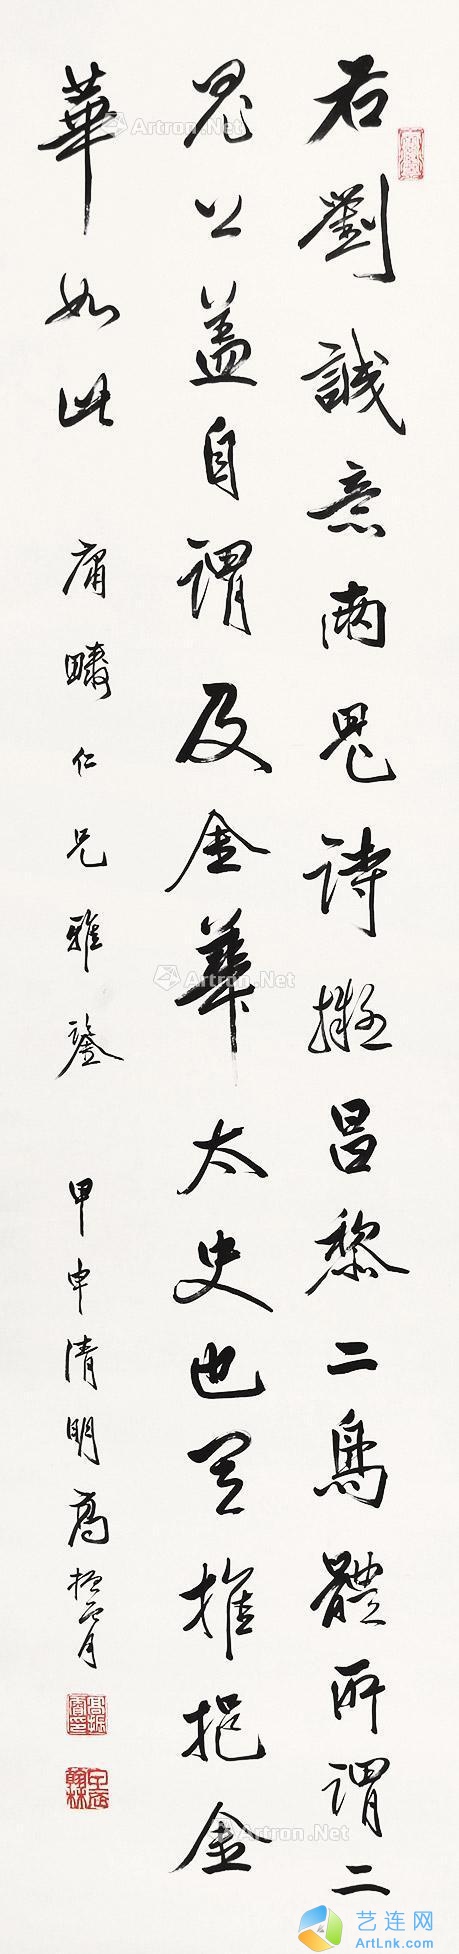 右劉誠意兩鬼詩擬昌黎二鳥體所謂二
鬼公蓋自謂及金華太史也其推挹金
華如此
庸疇仁兄雅鑒
甲申清明高振霄
高振霄印
Artron.Net
Artron.Net
Artron.Net
艺连网
ArtLnk.com